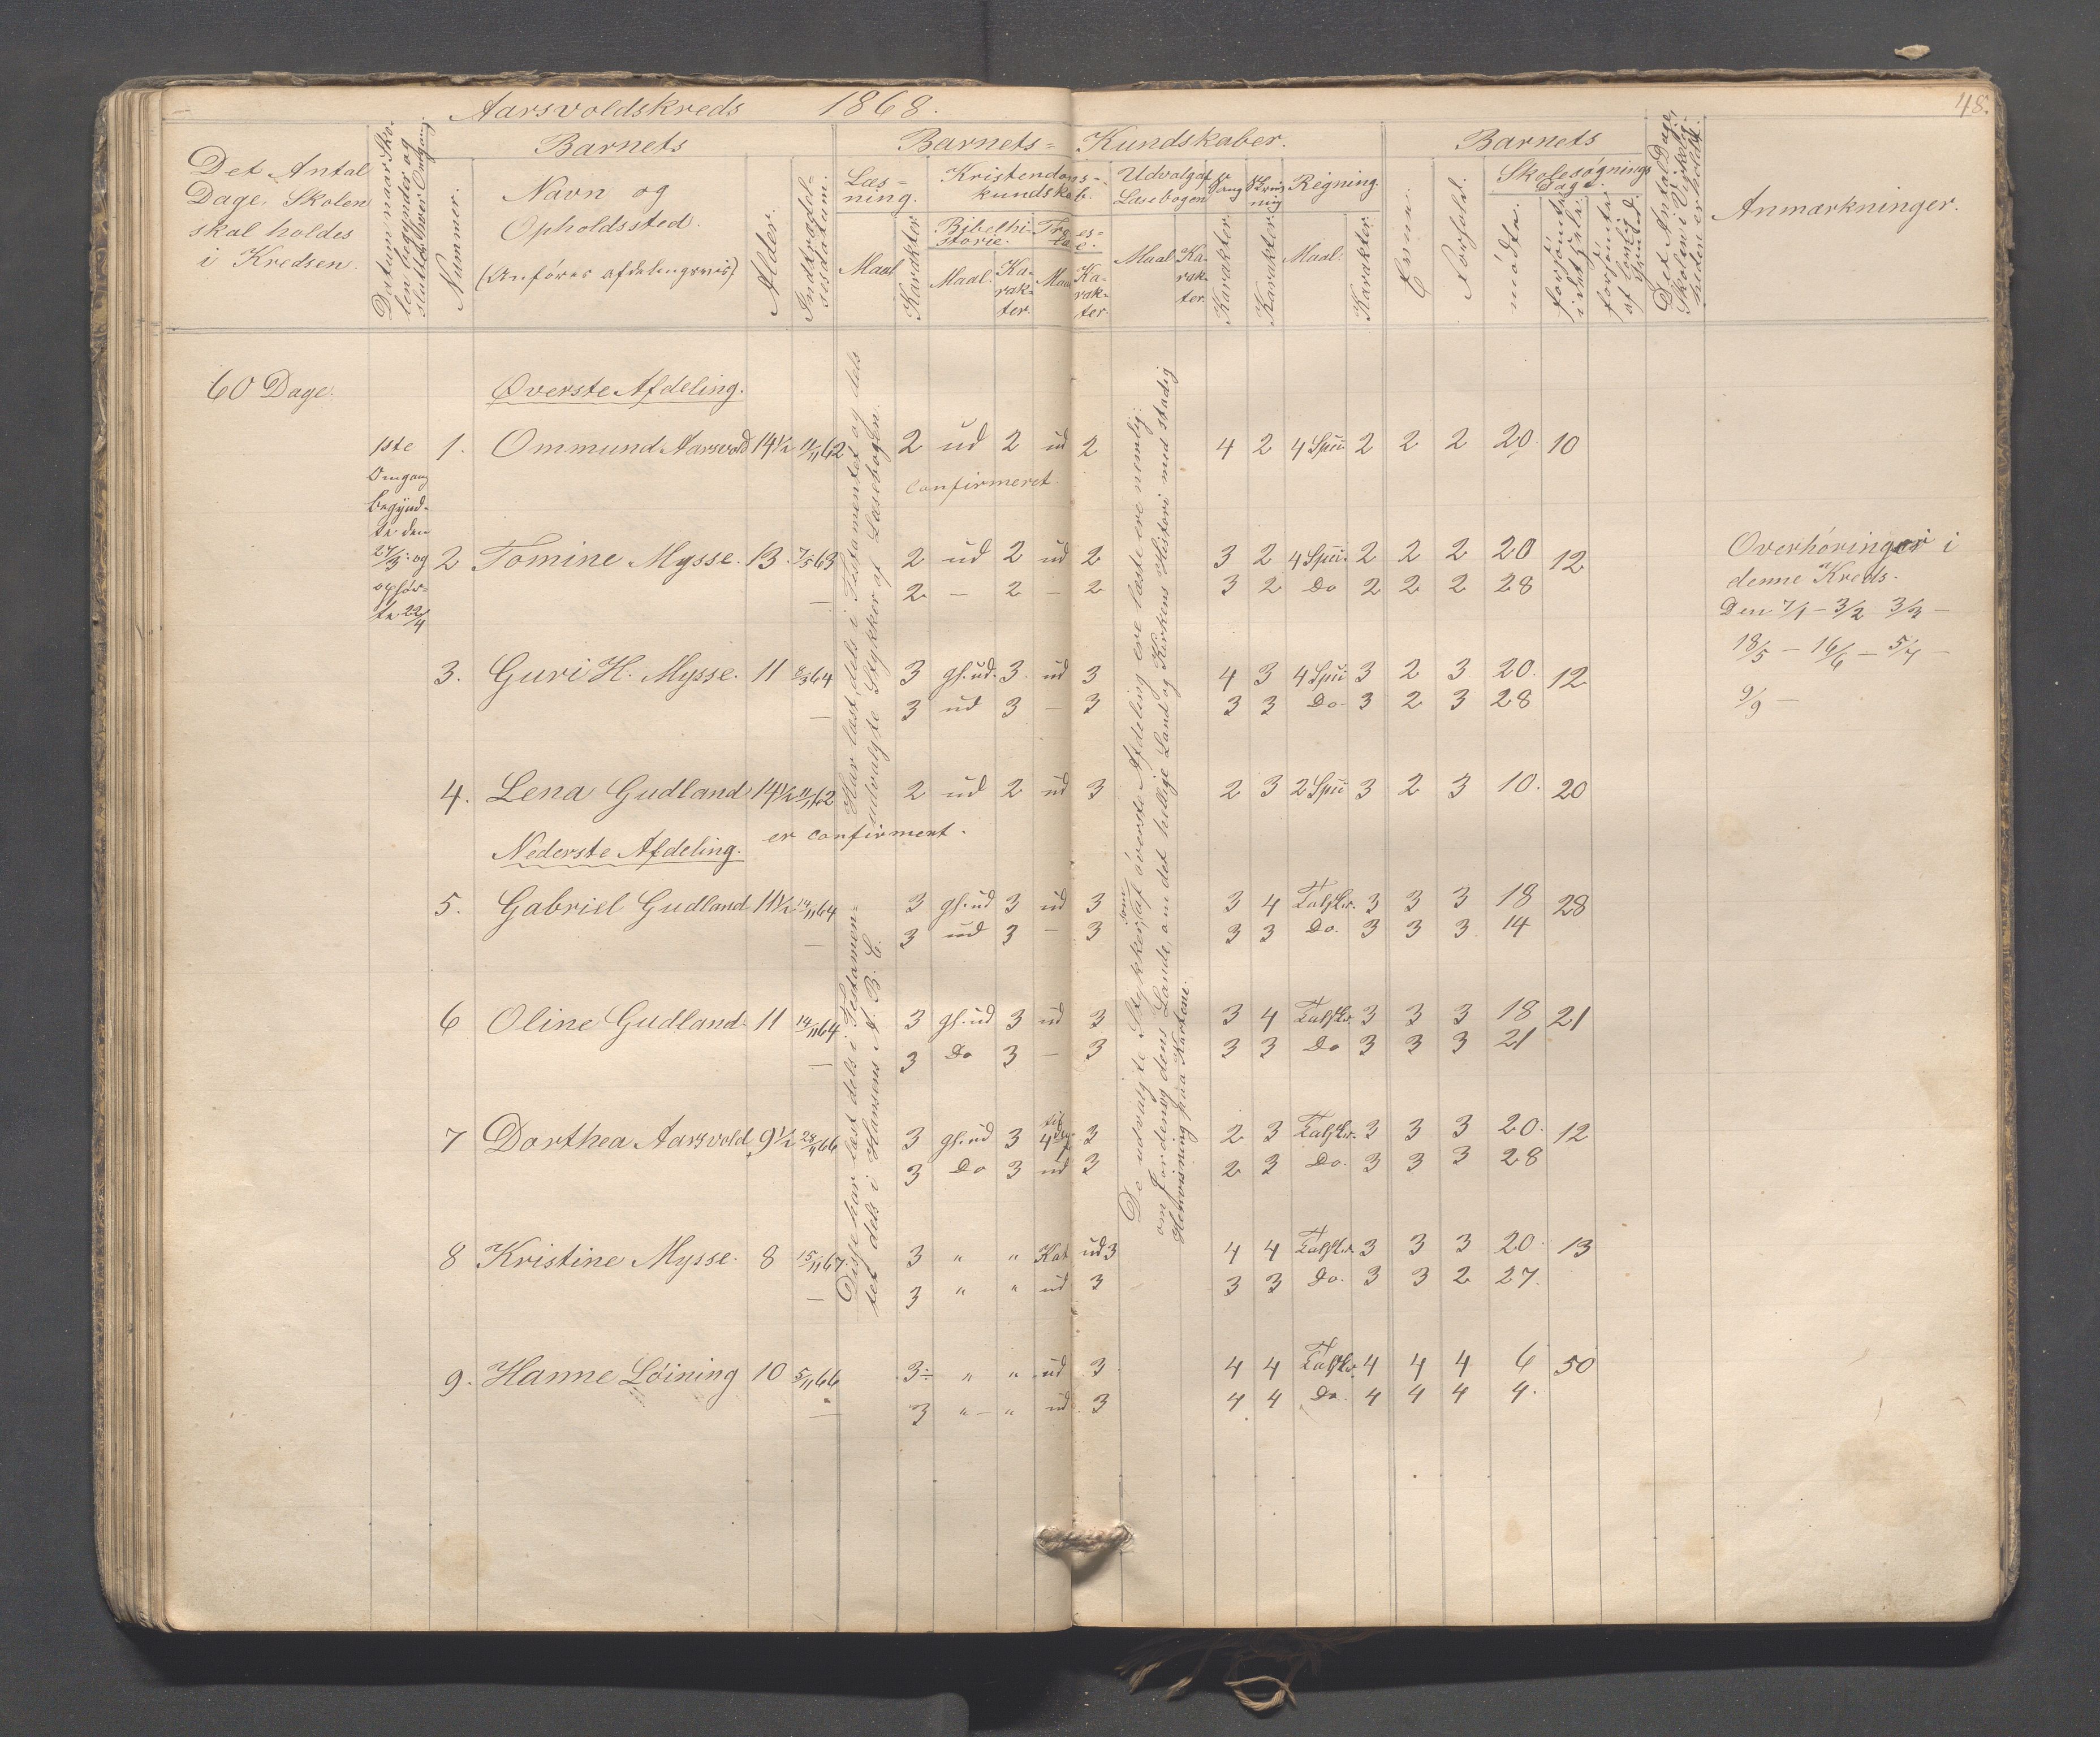 Aarsvoldskreds 1868.
48.
Det Antal Dage, Skolen skal holdes i Kredsen.
Datum naar Skolen begynder og slutter hver Omgang.
Nummer.
Barnets
Navn og Opholdssted.
(Anføres afdelingsvis)
Alder.
Indtrædelsesdatum.
Barnets Kundskaber.
Læsning.
Maal
Karakter
Kristendomskundskab.
Bibelhistorie.
Maal.
Karakter.
Troeslære.
Maal
Karakter.
Udvalg af Læsebogen
Maal
Karakter.
Sang
Karakter.
Skrivning
Karakter.
Regning.
Maal.
Karakter.
Barnets
Evne.
Forhold.
Skolesøgningsdage.
mødte.
forsømte i det hele.
forsømte af lovlig Grund.
Det Antal Dage, Skolen i Virkeligheden er holdt.
Anmærkninger.
60 Dage.
Øverste Afdeling.
1ste Omgang begyndte den 24/3 og ophørte 22/4
1. Ommund Aarsvold 14½ 11/11 62 2 ud 2 ud 2 4 2 4 Spii 2 2 2 20 10
confirmeret
2 Tomine Mysse. 13. 7/5 63 2 ud 2 ud 2 3 2 4 Spii. 2 2 2 20 12
— 2 — 2 — 2 3 2 Do 2 2 2 28
3. Guri H. Mysse. 11 8/5 64 3 gl. ud. 3. ud 3 4 3 4 Spii 3 2 3 20. 12
— 3 ud 3 — 3 3 3 Do 3 2 3 28
4. Lena Gudland 14½ 11/11 62 2 ud 2 ud 3 2 3 2 Spii 3 2 3 10. 20
er confirment.
Nederste Afdeling.
5. Gabriel Gudland 11½ 14/11 64 3 gl. ud 3 ud 3 3 4 3 3 3 18 28
— 3 ud 3 — 3 3 3 Do. 3 3 3 14
6 Oline Gudland 11 14/11 64 3 gl. ud 3 ud 3 3 4 3 3 3 18 21
— 3 Do 3 — 3 3 3 Do 3 3 3 21
7 Dorthea Aarsvold 9½ 23/4 66 3 gl. ud 3 til 4 3 2 3 3 3 3 20. 12
3 Do 3 ud 3 2 3 Do. 3 3 3 28
8 Kristine Mysse. 8 15/11 67 3 " " Kat ud 3 4 4 3 3 3 20. 13
— 3 " " ud 3 3 3 Do. 3 3 2 27.
9. Hanne Löining 10 5/11 66 3÷ " " ud 3 4 4 4 4 4 6 50
— 3 " — " ud 3 4 4 Do. 4 4 4 4.
Har læst dels i Testamentet og dels
udvalgte Stykker af Læsebogen.
Disse har læst dels i Testamen=
tet dels i Hansens A. B. C.
De udvalgte Stykker, som af øverste Afdeling ere læste ere nemlig:
om Jorden og dens Lande, om det hellige Land og Kirkens Histori med stadig
Henvisning paa Kartene.
Overhøringer i
denne Kreds.
Den 7/1 – 3/2 3/3 –
18/5 – 16/6 – 5/7 –
9/9 –